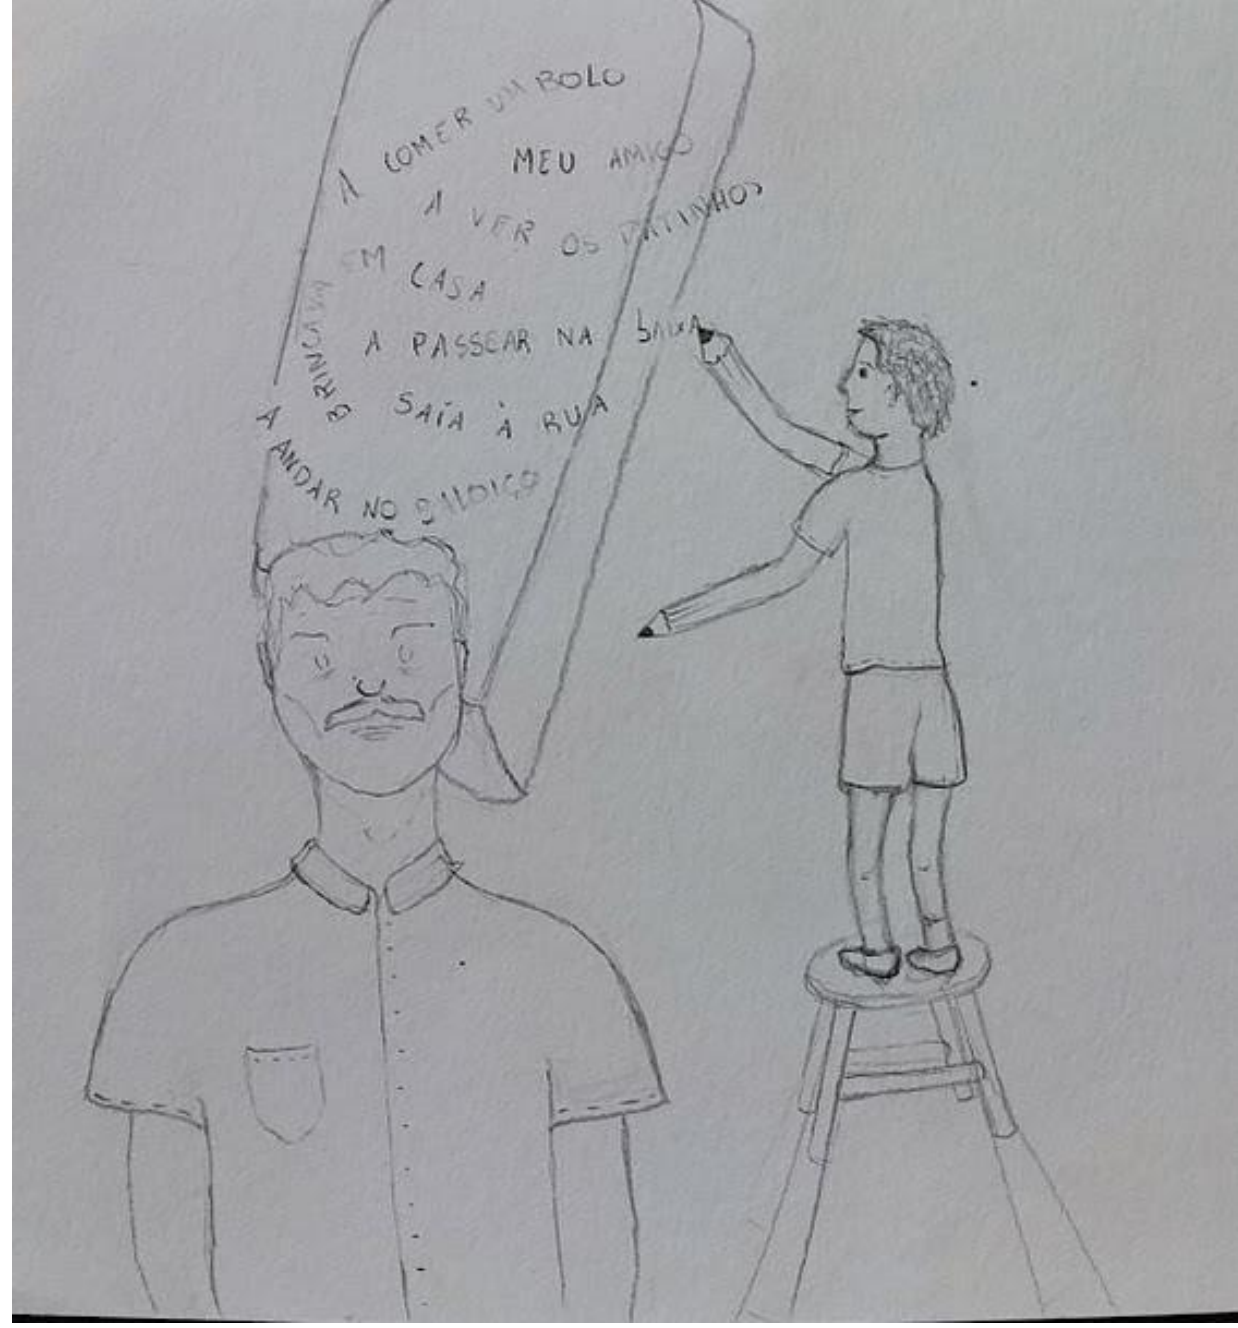 A COMER UM BOLO
MEU AMIGO
A VER OS PATINHOS
BRINCAVA EM CASA
A PASSEAR NA BAIXA
SAÍA À RUA
A ANDAR NO BALOIÇO